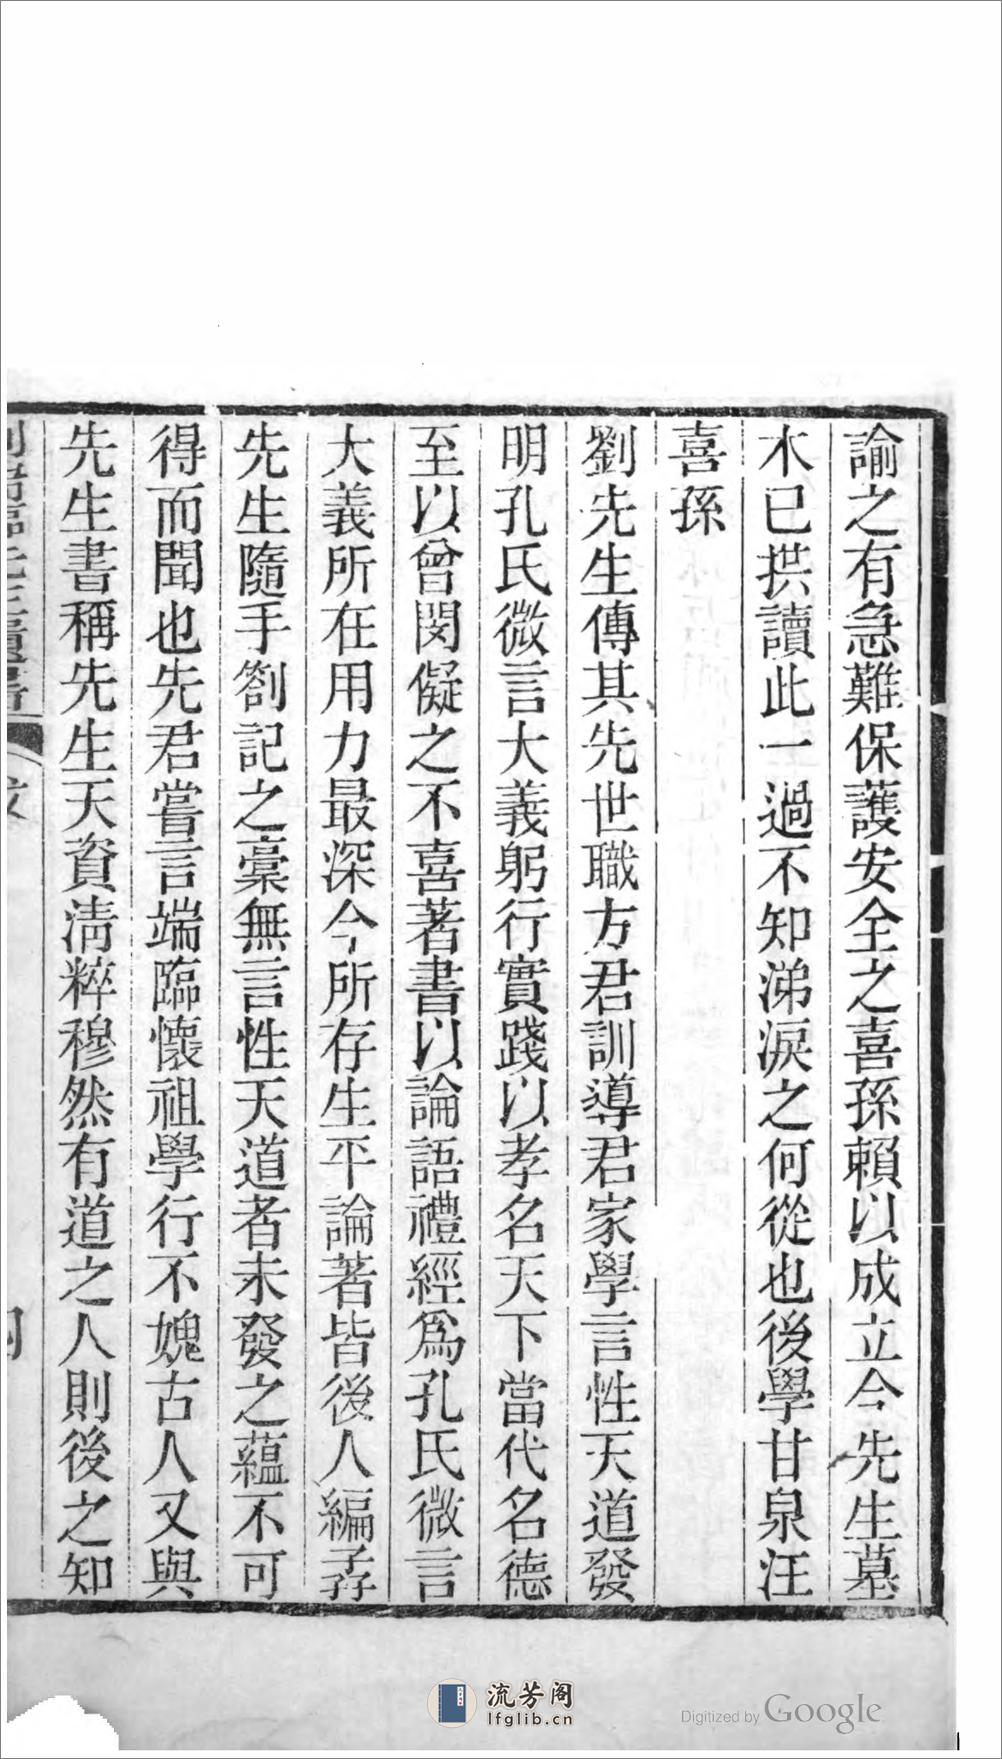 諭之有急難保護安全之喜孫賴以成立今先生墓
木已拱讀此一過不知涕淚之何從也後學甘泉汪
喜孫
劉先生傳其先世職方君訓導君家學言性天道發
明孔氏微言大義躬行實踐以孝名天下當代名德
至以曾閔儗之不喜著書以論語禮經爲孔氏微言
大義所在用力最深今所存生平論著皆後人編孴
先生隨手劄記之稾無言性天道者未發之蘊不可
得而聞也先君嘗言端臨懷祖學行不媿古人又與
先生書稱先生天資淸粹穆然有道之人則後之知
流芳阁
lfglib.cn
Digitized by Google